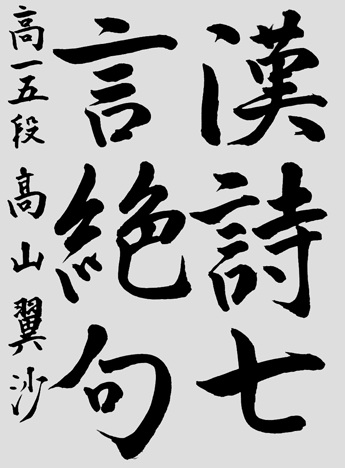 漢詩七
言絶句
高一五段 髙山翼沙